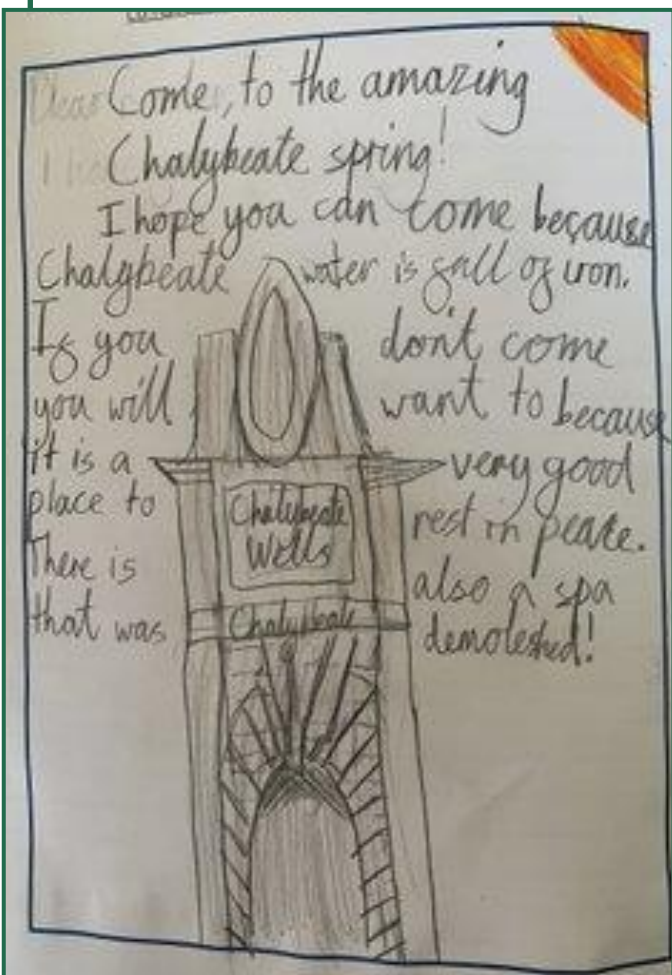 Come, to the amazing
Chalybeate spring!
I hope you can come because
Chalybeate water is gall of iron.
Ig you don't come
you will want to because
it is a very good
place to rest in peace.
There is also a spa
that was demoleshed!
Chalybeate
Wells
Chalybeate